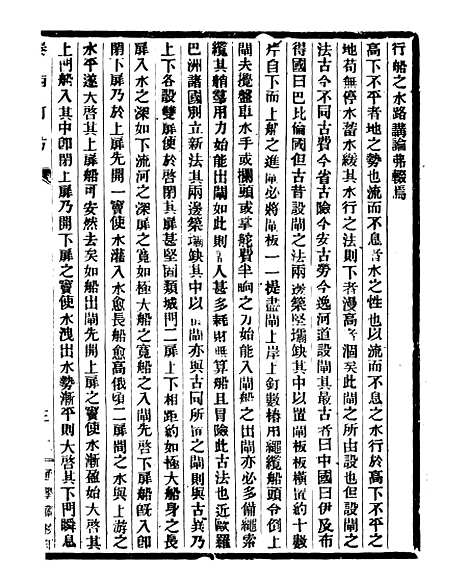 行船之水路講論弗輟焉
高下不平者地之勢也流而不息者水之性也以流而不息之水行於高下不平之
地苟無停水蓄水緩其水行之法則下者漫高者涸矣此閘之所由設也但設閘之
法古今不同古費今省古險今安古勞今逸河道設閘其最古者曰中國曰伊及布
得國曰巴比倫國但古昔設閘之法兩邊築堅壩缺其中以置閘板板橫置約十數
片自下而上船之進閘必將閘板一一提盡閘上岸上釘數樁用繩纜船頭令倒上
閘夫攪盤取水手或攔頭或掌舵費半晌之力始能入閘船之出閘亦必多備繩索
纜其艄羣用力始能出閘如此則 人甚多耗財無算船且冒險此古法也近歐羅
巴洲諸國別立新法其兩邊築壩缺其中以 閘亦與古同所 之閘則與古異乃
上下各設雙扉使於啓閉其扉甚堅固類城門二扉上下相距約如極大船身之長
扉入水之深如下流河之深扉之寬如極大船之寬船之入閘先啓下扉船旣入卽
閉下扉乃於上扉先開一竇使水灌入水愈長船愈高俄頃二扉間之水與上游之
水平遂大啓其上扉船可安然去矣如船出閘先開上扉之竇使水漸盈始大啓其
上門船入其中卽閉上扉乃開下扉之竇使水洩出水勢漸平則大啓其下門瞬息
三